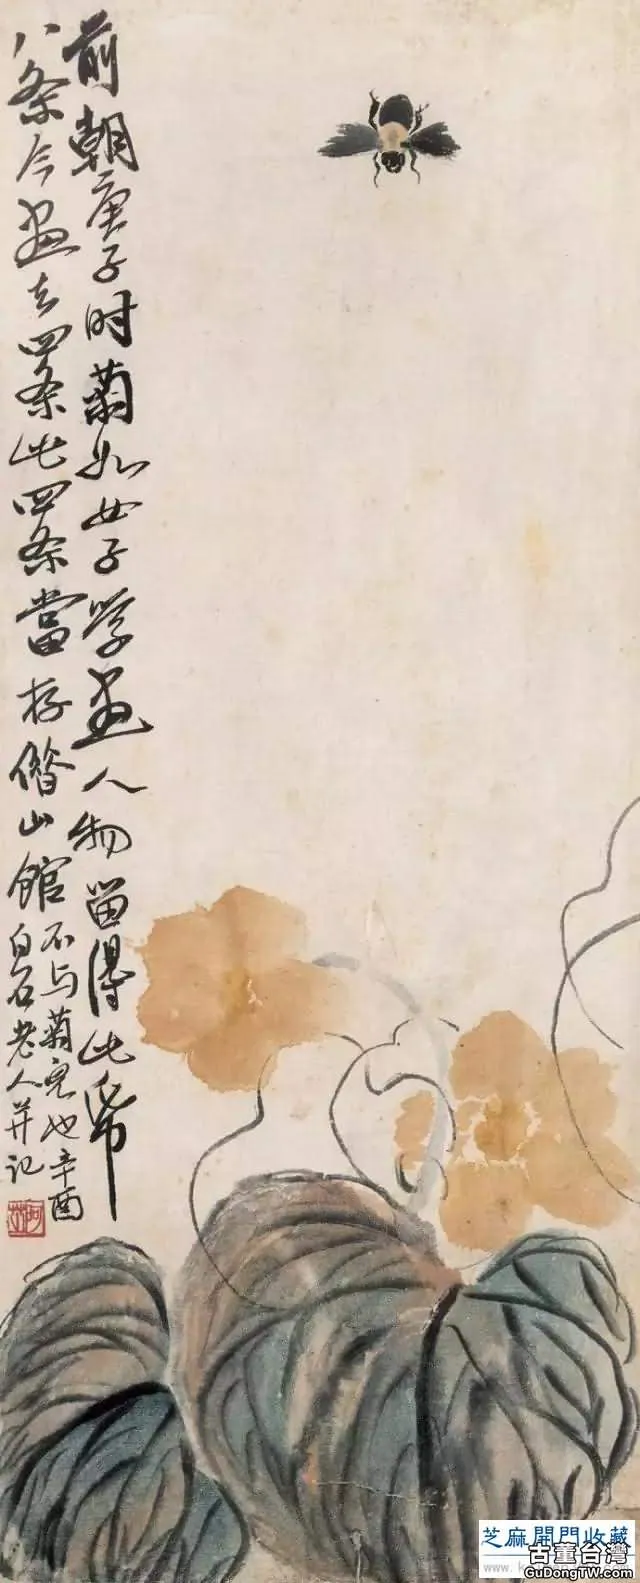 前朝庚子时菊如女子学画人物留得此帋
八条今画去四条此四条當存借山館
不与菊儿也辛酉
白石老人并记
阿芝
芝麻開門收藏
古董台灣
GuDongTW.com